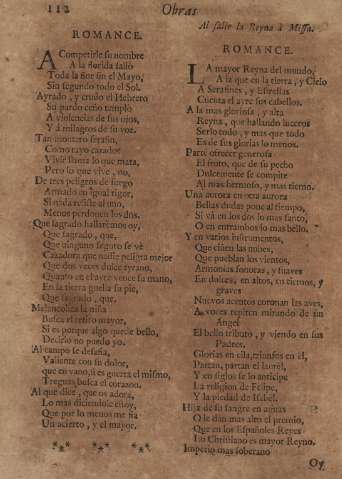 112 Obras
ROMANCE.
A Competirle su nombre
A la florida salió
Toda la flor sin el Mayo,
Sin segundo todo el Sol.
Ayrado, y crudo el Hebrero
Su pardo ceño templó
A violencias de sus ojos,
Y à milagros de su voz.
Tan montero serafin,
Como rayo cazador
Vivifica lo que mata,
Pero lo que vive, no,
De tres peligros de fuego
Armado en igual rigor,
Si nada resiste al uno,
Menos perdonen los dos.
Que sagrado hallaremos oy,
Que sagrado, que,
Que ninguno seguro se vè
Cazadora que nadie peligra mejor
Que dos veces dulce tyrano,
Quanto en el ayre vence su mano,
En la tierra huella su pie,
Que sagrado, que.
Melancolica la niña
Busca el retiro mayor,
Si es porque algo quiede bello,
Decirlo no puedo yo.
Al campo se desafia,
Valiente con su dolor,
que en vano, si es guerra el mismo,
Treguas busca el corazon.
Al que dice, que os adora,
Lo mas diciendole estoy,
Que por lo menos me hà
Un acierto, y el mayor.
Al salir la Reyna à Missa.
ROMANCE.
LA mayor Reyna del mundo,
A la que en la tierra, y Cielo
A Serafines, y Estrellas
Cuenta el ayre sus cabellos.
A la mas gloriosa, y alta
Reyna, que hallando luceros
Serlo todo, y mas que todo
Es de sus glorias lo menos.
Parte ofrecer generosa
El fruto, que de su pecho
Dulcemente se compite
Al mas hermoso, y mas tierno.
Una aurora en otra aurora
Bellas dudas pone al tiempo,
Si và en los dos lo mas santo,
O en entrambos lo mas bello.
Y en varios instrumentos,
Que ciñen las nubes,
Que pueblan los vientos,
Armonias sonoras, y suaves
En dulces, en altos, en tiernos, y
graves
Nuevos acentos coronan las aves,
A voces repiten mirando de un
Angel
El bello tributo, y viendo en sus
Padres.
Glorias en ella, triunfos en él,
Partan, partan el laurél,
Y en siglos se lo anticipe
La religion de Felipe,
Y la piedad de Isabel.
Hija de su sangre en ambas
O le dan mas alto el premio,
Que en los Españoles Reyes
Lo Christiano es mayor Reyno.
Imperio mas soberano
Oy